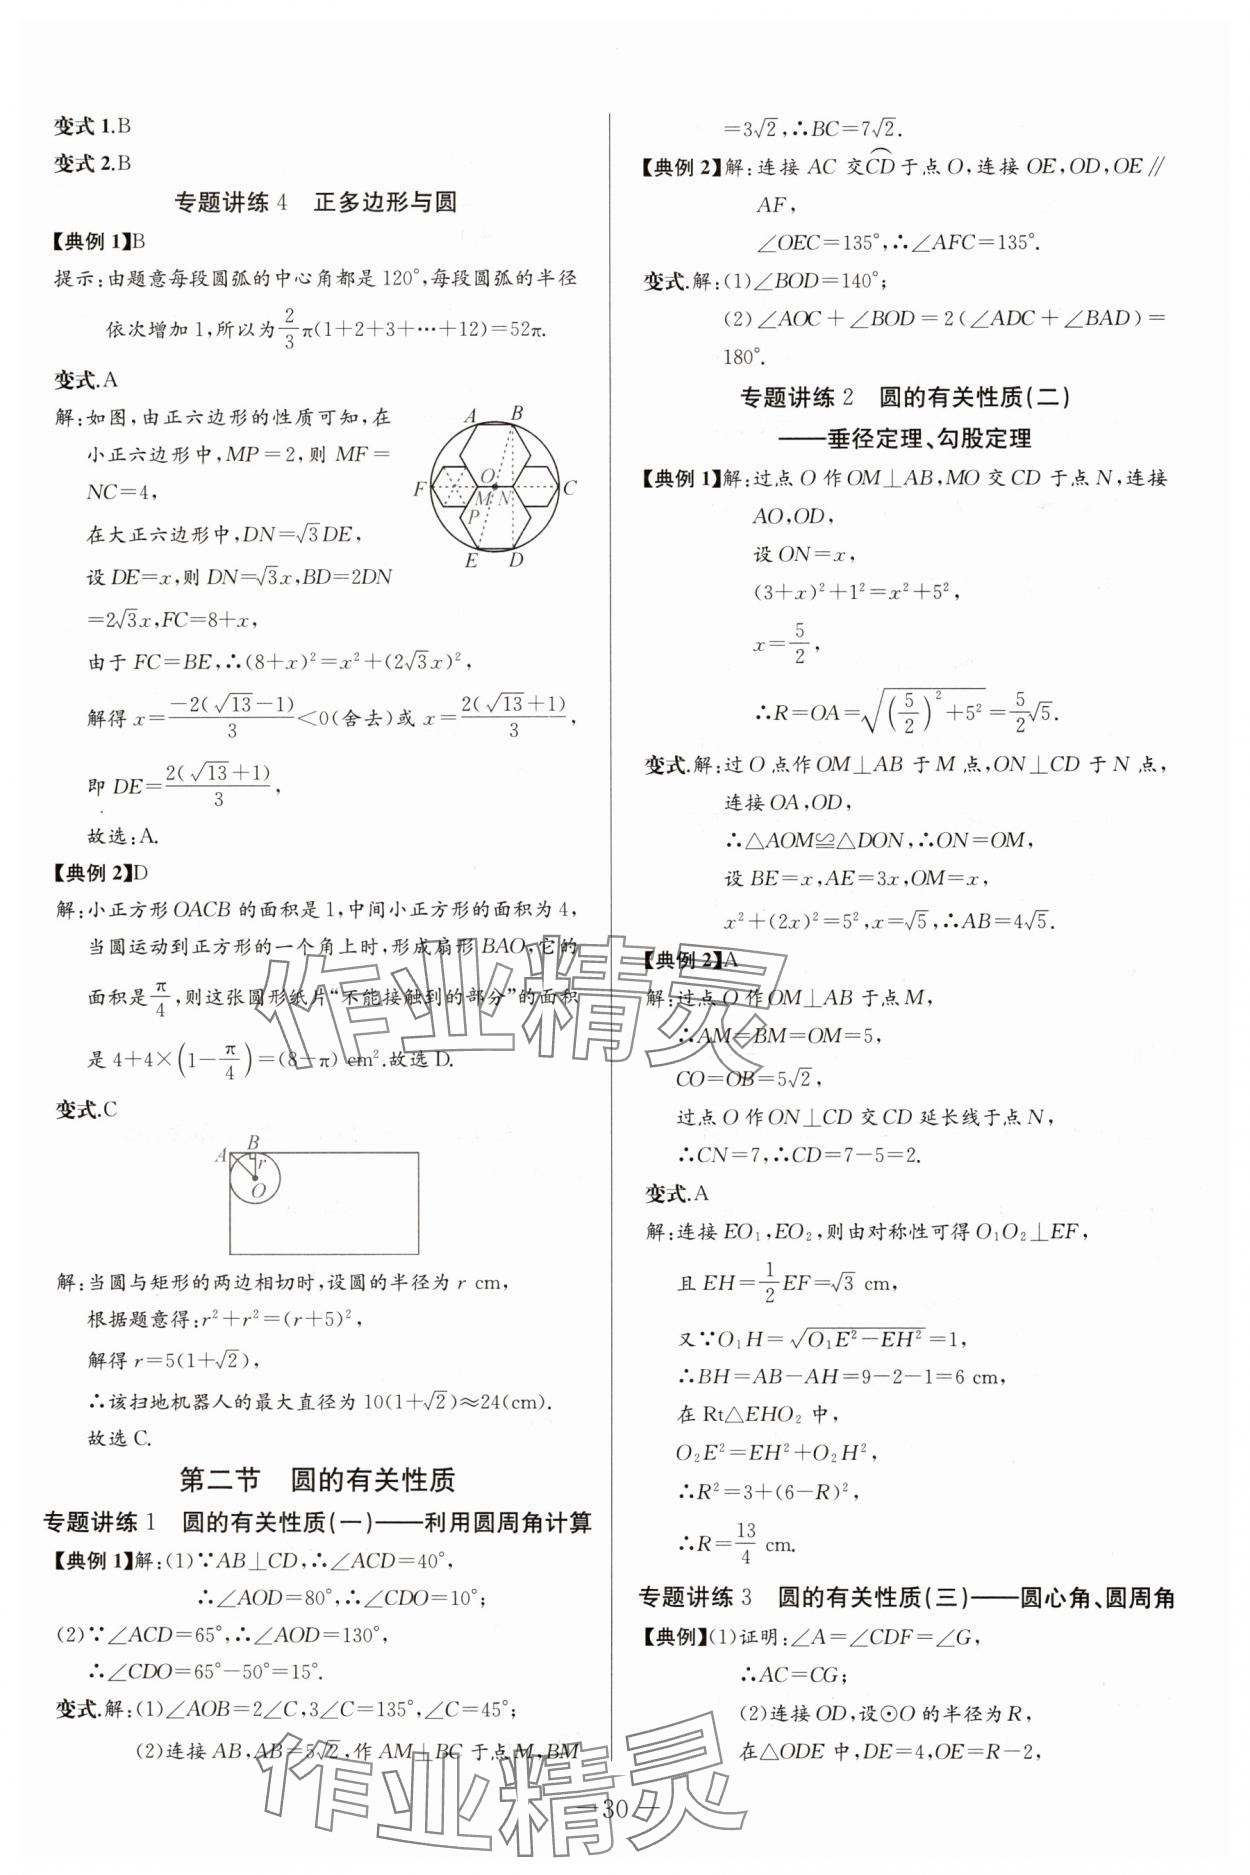 变式 1.B
变式 2.B
专题讲练 4　正多边形与圆
【典例 1】B
提示:由题意每段圆弧的中心角都是 120°,每段圆弧的半径
依次增加 1,所以为$\frac{2}{3}$π(1+2+3+…+12)=52π.
变式.A
解:如图,由正六边形的性质可知,在
小正六边形中,MP=2,则 MF=
NC=4,
在大正六边形中,DN=√3DE,
设 DE=x,则 DN=√3x,BD=2DN
=2√3x,FC=8+x,
由于 FC=BE,∴(8+x)²=x²+(2√3x)²,
解得 x=$\frac{-2(\sqrt{13}-1)}{3}$<0(舍去)或 x=$\frac{2(\sqrt{13}+1)}{3}$,
即 DE=$\frac{2(\sqrt{13}+1)}{3}$,
故选:A.
A B
F O M N C
P
E D
【典例 2】D
解:小正方形 OACB 的面积是 1,中间小正方形的面积为 4,
当圆运动到正方形的一个角上时,形成扇形 BAO,它的
面积是$\frac{π}{4}$,则这张圆形纸片“不能接触到的部分”的面积
是 4+4×(1-$\frac{π}{4}$)=(8-π) cm².故选 D.
变式.C
A B
r
O
解:当圆与矩形的两边相切时,设圆的半径为 r cm,
根据题意得:r²+r²=(r+5)²,
解得 r=5(1+√2),
∴该扫地机器人的最大直径为 10(1+√2)≈24(cm).
故选 C.
第二节　圆的有关性质
专题讲练 1　圆的有关性质(一)——利用圆周角计算
【典例 1】解:(1)∵AB⊥CD,∴∠ACD=40°,
∴∠AOD=80°,∠CDO=10°;
(2)∵∠ACD=65°,∴∠AOD=130°,
∴∠CDO=65°-50°=15°.
变式.解:(1)∠AOB=2∠C,3∠C=135°,∠C=45°;
(2)连接 AB,AB=5√2,作 AM⊥BC 于点 M,BM
=3√2,∴BC=7√2.
【典例 2】解:连接 AC 交$\overset{\frown}{CD}$于点 O,连接 OE,OD,OE∥
AF,
∠OEC=135°,∴∠AFC=135°.
变式.解:(1)∠BOD=140°;
(2)∠AOC+∠BOD=2(∠ADC+∠BAD)=
180°.
专题讲练 2　圆的有关性质(二)
——垂径定理、勾股定理
【典例 1】解:过点 O 作 OM⊥AB,MO 交 CD 于点 N,连接
AO,OD,
设 ON=x,
(3+x)²+1²=x²+5²,
x=$\frac{5}{2}$,
∴R=OA=$\sqrt{\left(\frac{5}{2}\right)^2+5^2}$=$\frac{5}{2}$√5.
变式.解:过 O 点作 OM⊥AB 于 M 点,ON⊥CD 于 N 点,
连接 OA,OD,
∴△AOM≌△DON,∴ON=OM,
设 BE=x,AE=3x,OM=x,
x²+(2x)²=5²,x=√5,∴AB=4√5.
【典例 2】A
解:过点 O 作 OM⊥AB 于点 M,
∴AM=BM=OM=5,
CO=OB=5√2,
过点 O 作 ON⊥CD 交 CD 延长线于点 N,
∴CN=7,∴CD=7-5=2.
变式.A
解:连接 EO₁,EO₂,则由对称性可得 O₁O₂⊥EF,
且 EH=$\frac{1}{2}$EF=√3 cm,
又∵O₁H=$\sqrt{O_1E^2-EH^2}$=1,
∴BH=AB-AH=9-2-1=6 cm,
在 Rt△EHO₂ 中,
O₂E²=EH²+O₂H²,
∴R²=3+(6-R)²,
∴R=$\frac{13}{4}$ cm.
专题讲练 3　圆的有关性质(三)——圆心角、圆周角
【典例】(1)证明:∠A=∠CDF=∠G,
∴AC=CG;
(2)连接 OD,设⊙O 的半径为 R,
在△ODE 中,DE=4,OE=R-2,
—30—
作业精灵
作业精灵